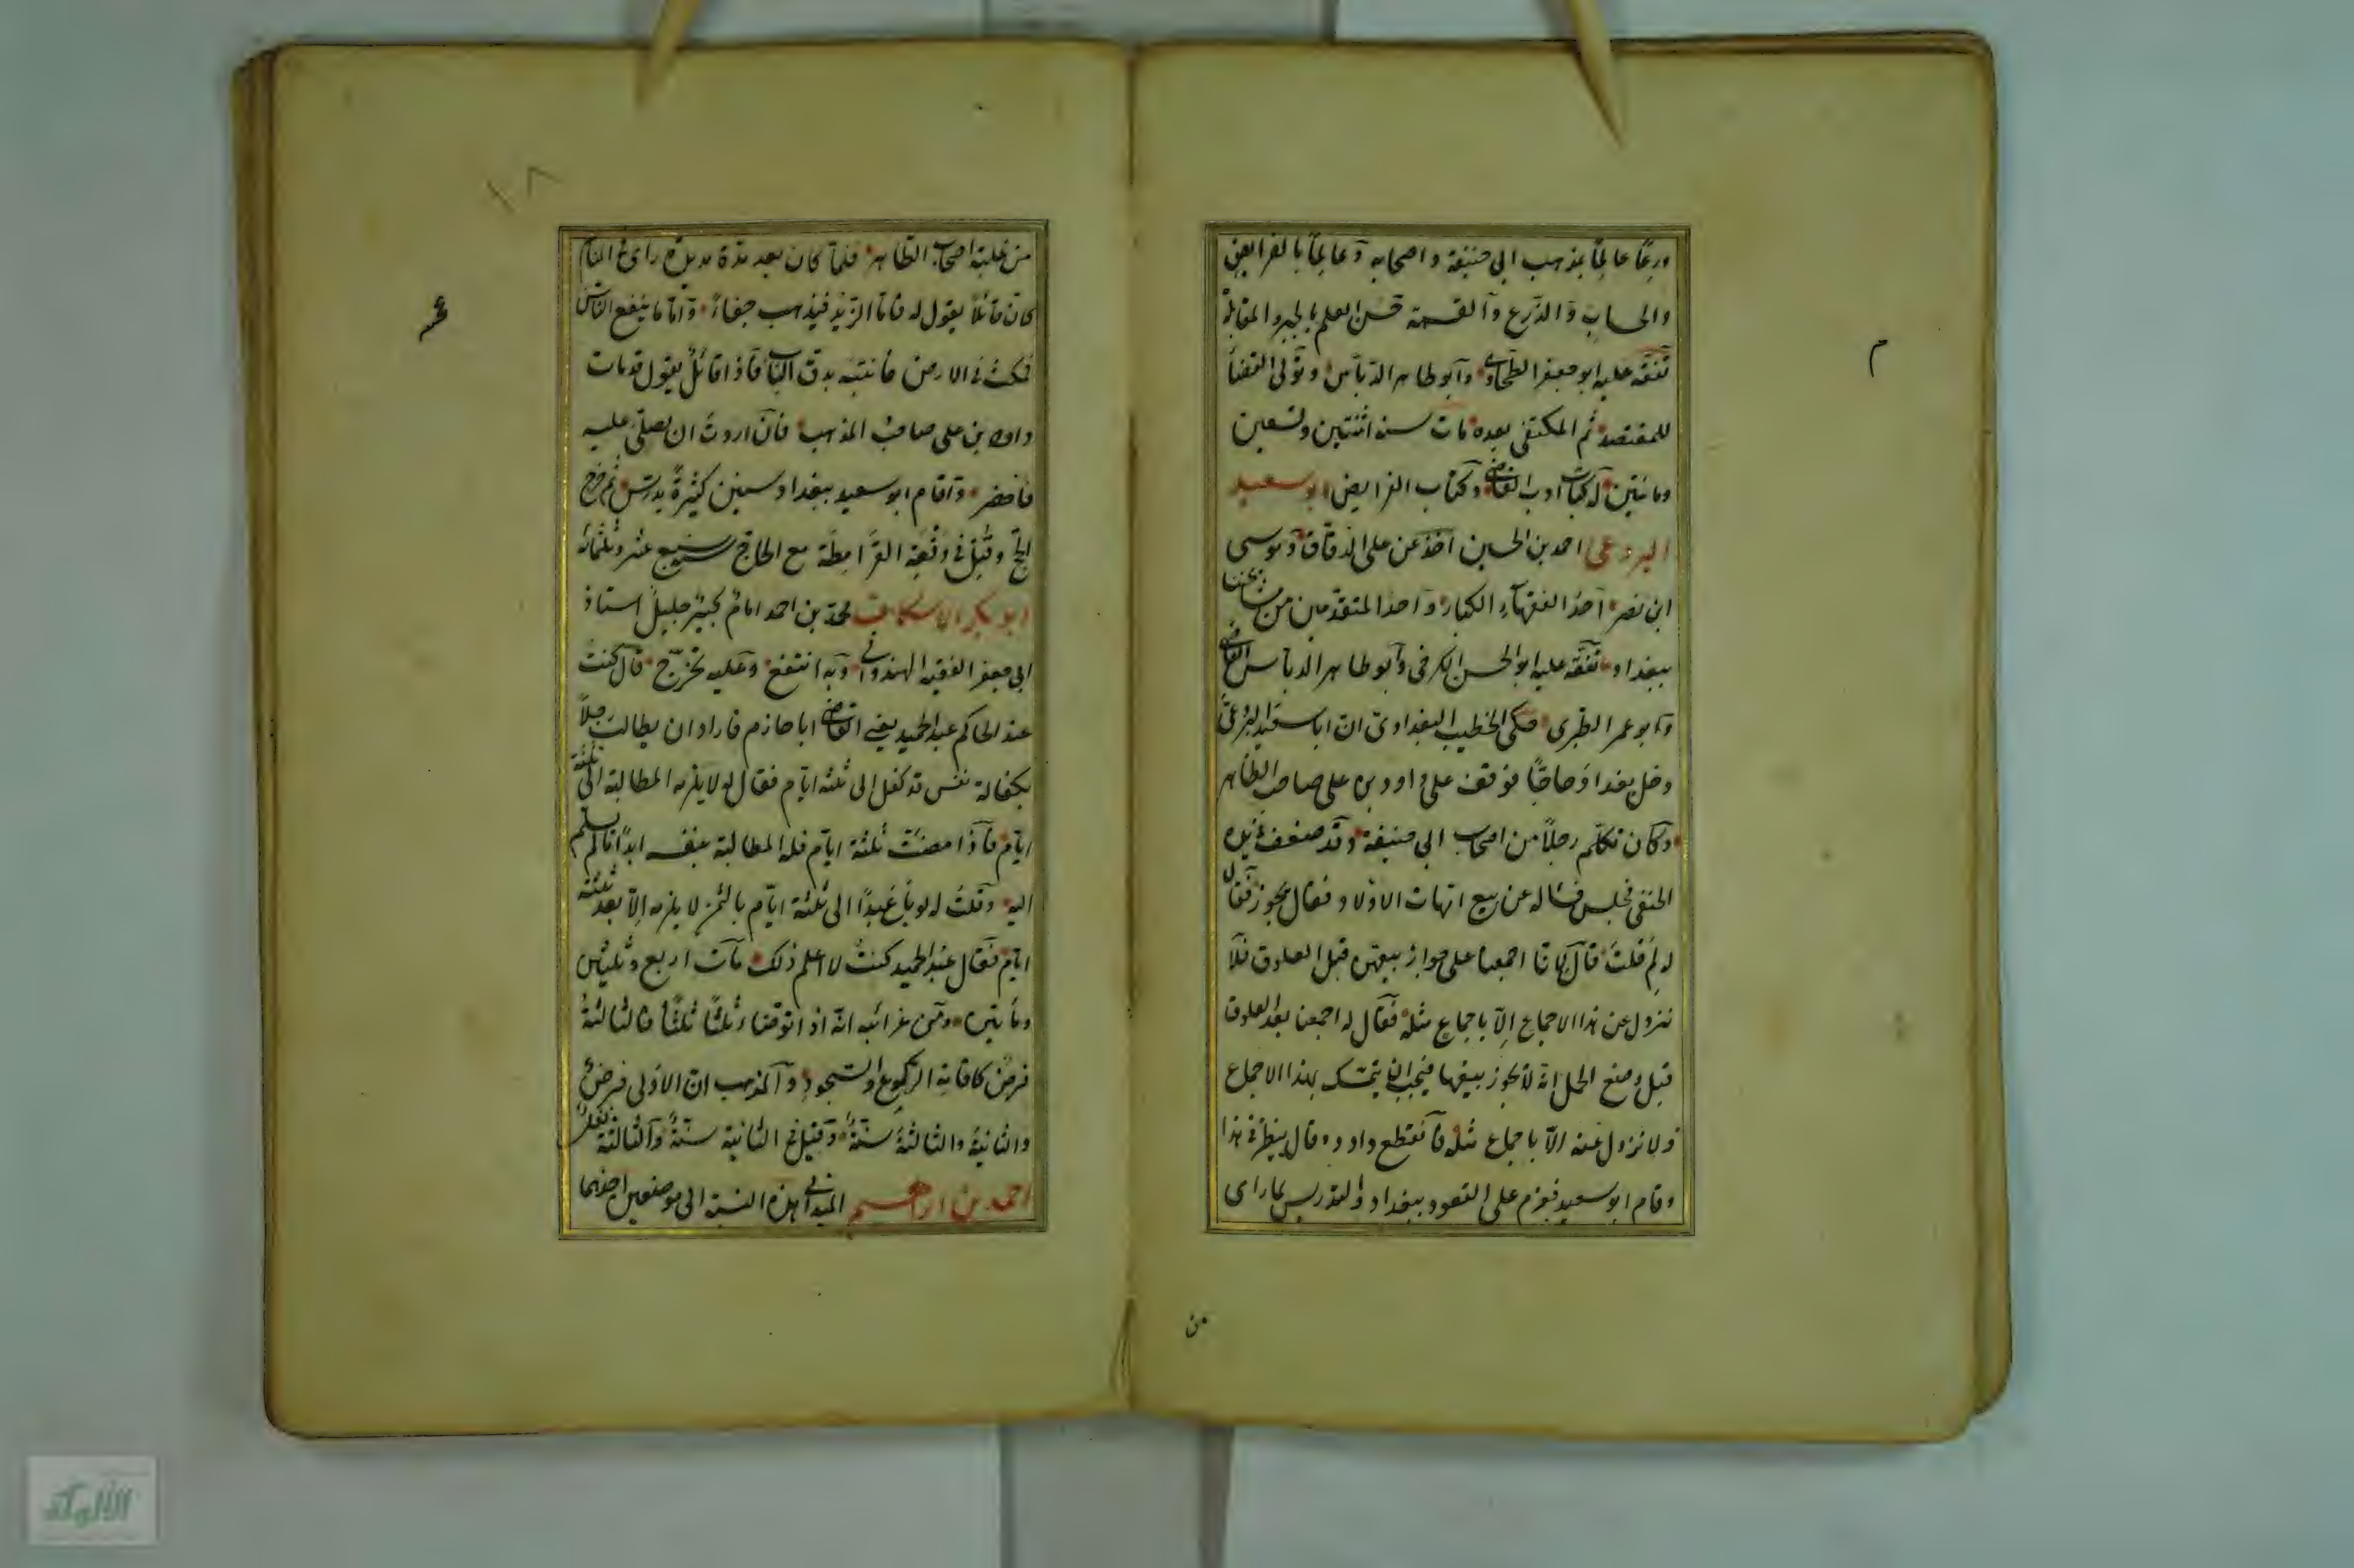 م
ورعًا عالمًا بمذهب ابي حنيفة واصحابه وعالمًا بالفرايض
والحساب والذرع والقسمة حسن العلم بالجبر والمقابلة
تفقّه عليه ابو جعفر الطحاوي وابو طاهر الدباس وتولى القضا
للمعتضد ثم المكتفى بعده مات سنة اثنتين وتسعين
ومائتين له كتاب ادب القاضى وكتاب الفرايض ابو سعيد
البردعى احمد بن الحسين اخذ عن على الدقاق وموسى
ابن نصر احد الفقهاء الكبار واحد المتقدّمين من مشايخنا
ببغداد تفقّه عليه ابو الحسن الكرخى وابو طاهر الدباس القاضى
وابو عمر الطبرى حكى الخطيب البغدادى انّ ابا سعيد البردعى
دخل بغداد حاجًّا فوقف على داود بن على صاحب الظاهر
وكان تكلّم رجلًا من اصحاب ابي حنيفة وقد ضعف فى يده
الحنفى فجلس فساله عن بيع امّهات الاولاد فقال يجوز فقال
له لم قلت قال لانّا اجمعنا على جواز بيعهن قبل العلوق فلا
نزول عن هذا الاجماع الّا باجماع مثله فقال له اجمعنا بعد العلوق
قبل وضع الحمل انّه لا يجوز بيعها فيجب ان يتمسّك بهذا الاجماع
ولا نزول عنه الّا باجماع مثله فانقطع داود وقال ينظر فى هذا
وقام ابو سعيد فعزم على القعود ببغداد والتدريس لما راى
من
١٨
من غلبة اصحاب الظاهر فلمّا كان بعد مدّة مديدة راى فى المنام
كانّ قائلًا يقول له فامّا الزبد فيذهب جفاءً وامّا ما ينفع الناس
فيمكث فى الارض فانتبه بدقّ الباب فاذا قائلٌ يقول قد مات
داود بن على صاحب المذهب فان اردت ان تصلّى عليه
فاحضر واقام ابو سعيد ببغداد سنين كثيرةً يدرّس ثم خرج
الى الحجّ وقُتل فى وقعة القرامطة مع الحاجّ سنة سبع عشر وثلثمائة
ابو بكر الاسكاف محمّد بن احمد امام كبير جليل استاذ
ابي جعفر الفقيه الهندوانى وبه انتفع وعليه تخرّج قال كنت
عند الحاكم عبد الحميد يعنى القاضى ابا حازم فاراد ان يطالب رجلًا
بكفالة نفس قد كفل الى ثلثة ايّام فقال له لا يلزمه المطالبة الى ثلثة
ايّام فاذا مضت ثلثة ايّام فله المطالبة بنفسه ابدًا ما لم يسلم
اليه وقلت له لو باع عبدًا الى ثلثة ايّام بالثمن لا يلزمه الّا بعد ثلثة
ايّام فقال عبد الحميد كنت لا اعلم ذلك مات اربع وثلثين
ومائتين ومن غرائبه انّه اذا توضّاء ثلثًا ثلثًا فالثالثة
فرض كاقامة الركوع والسجود والمذهب انّ الاولى فرض
والثانية والثالثة سنّة وقيل فى الثانية سنّة والثالثة نفل
احمد بن ابراهيم الميدانى هذه النسبة الى موضعين احدهما